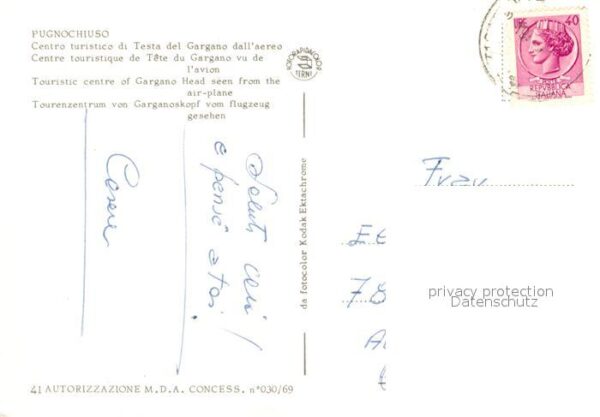 PUGNOCHIUSO
Centro turistico di Testa del Gargano dall'aereo
Centre touristique de Tête du Gargano vu de
l'avion
Touristic centre of Gargano Head seen from the
air-plane
Tourenzentrum von Garganoskopf vom flugzeug
gesehen
FOTORAPIDACOLOR
TERNI
40
REPVBBLICA
ITALIANA
Saluti cari!
e pensé a toi
da fotocolor Kodak Ektachrome
Frau
privacy protection
Datenschutz
41 AUTORIZZAZIONE M.D.A. CONCESS. n°030/69